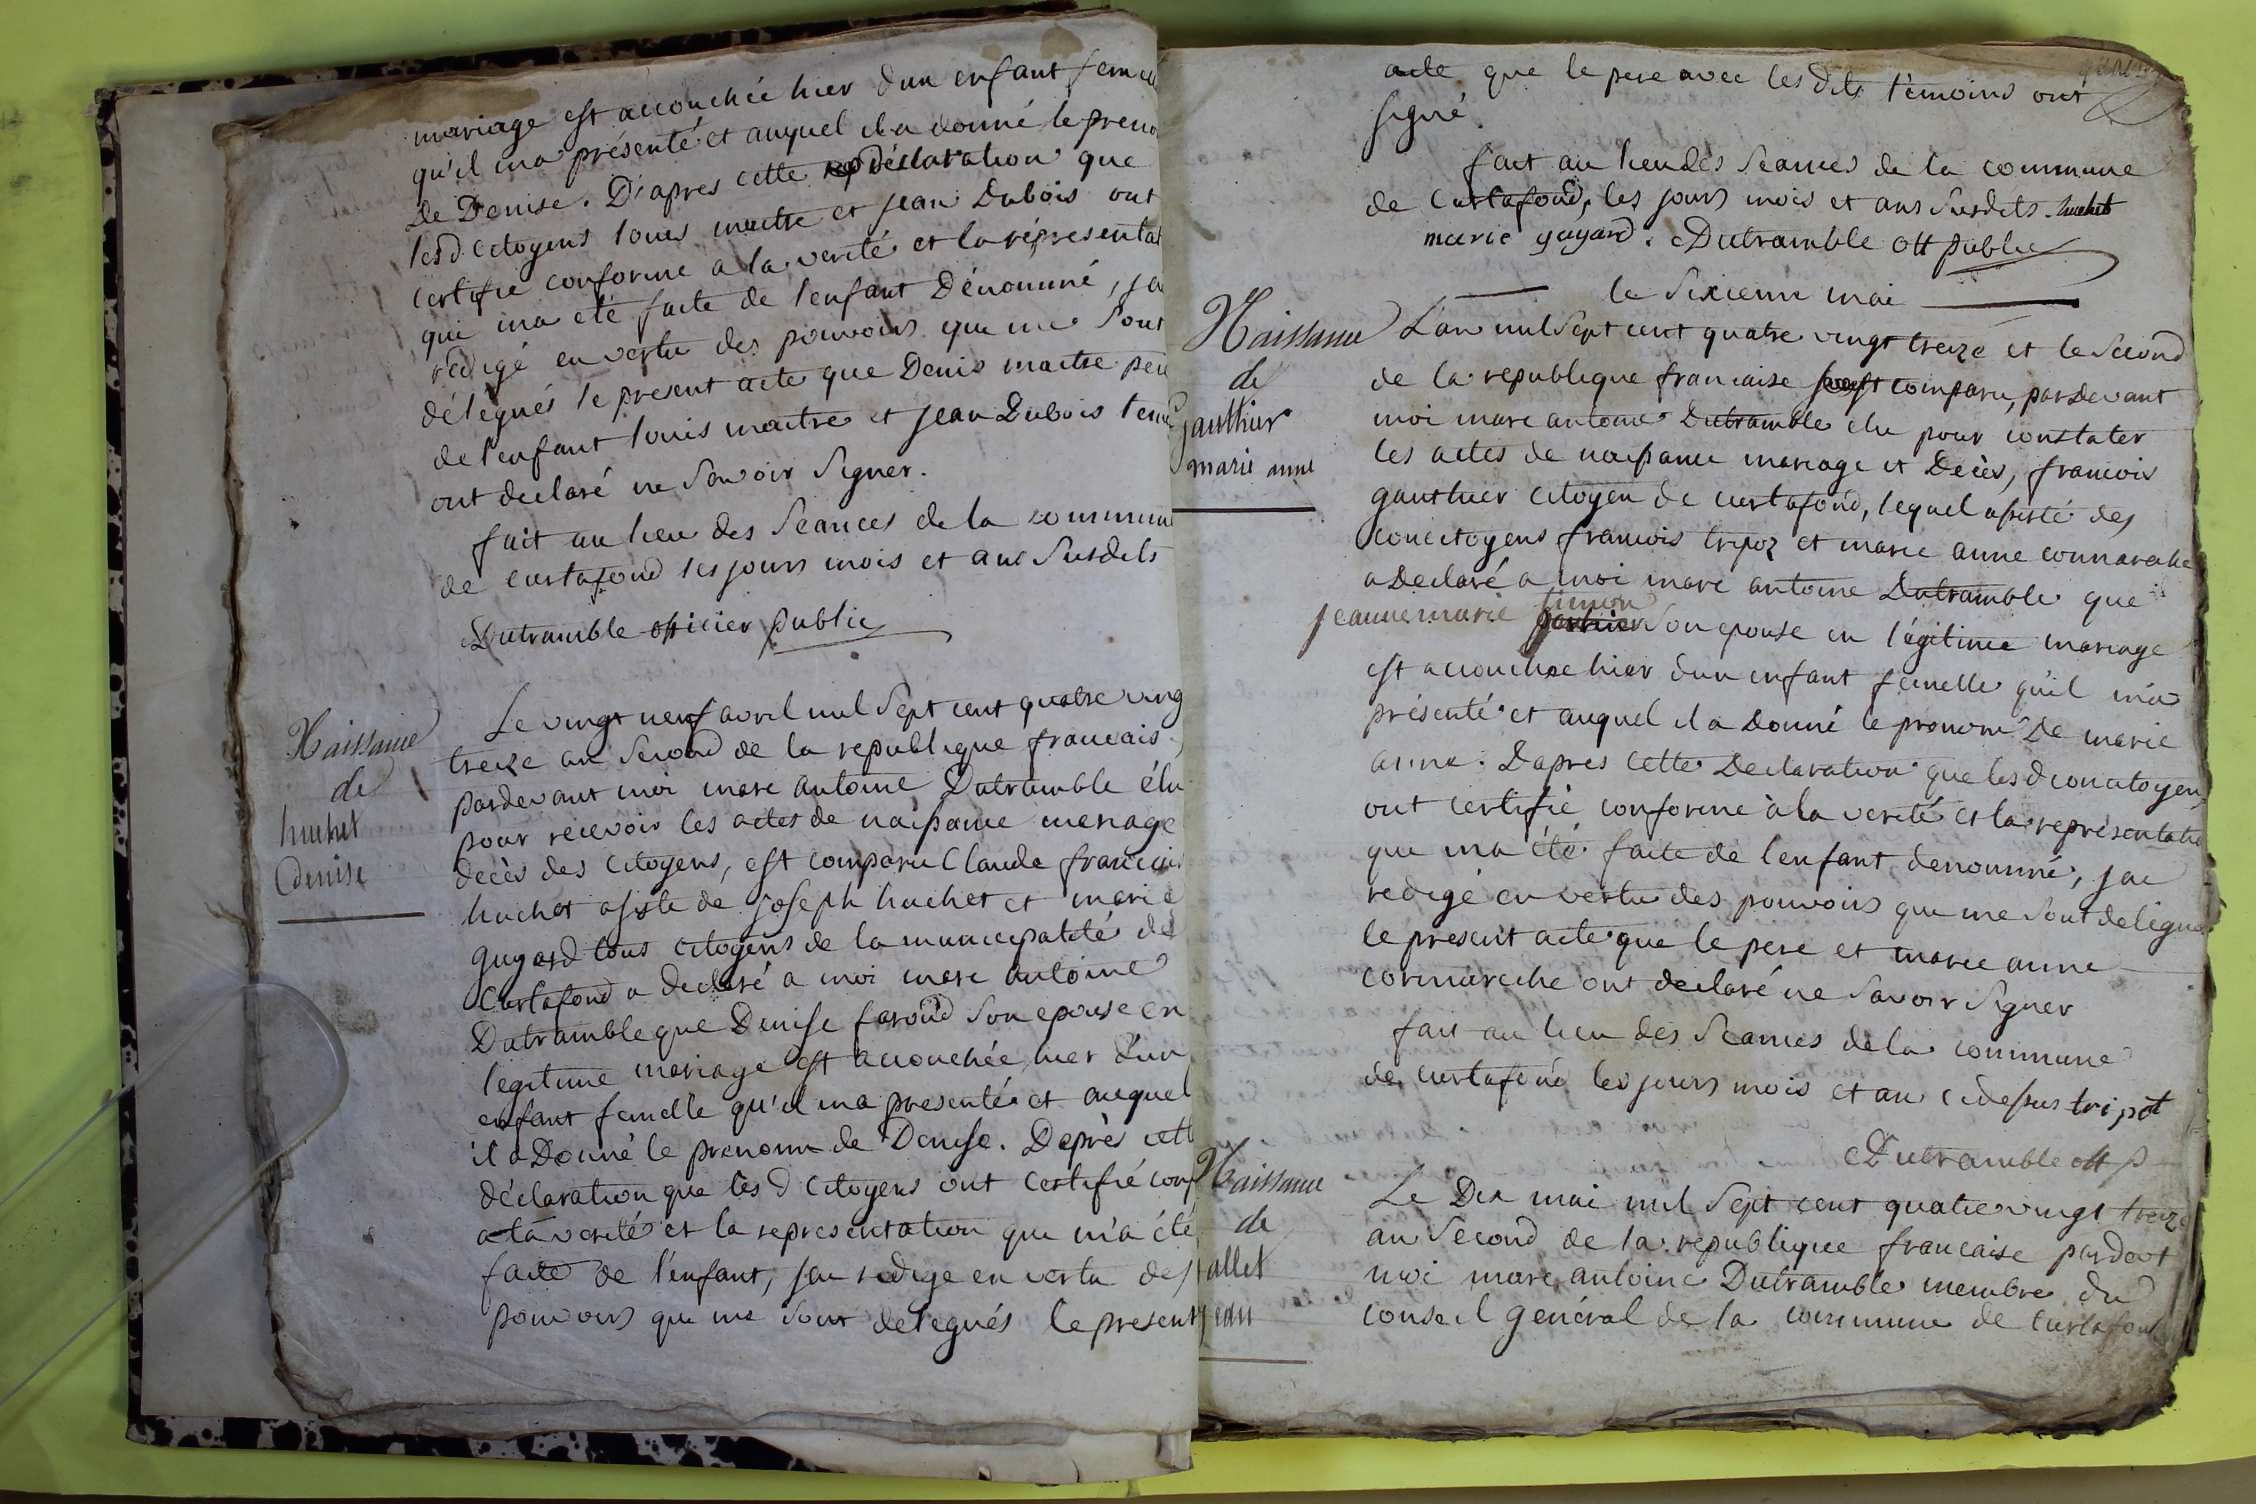 mariage est accouchée hier d'un enfant femell
qu'il m'a présenté et auquel il a donné le preno
de Denise. D'apres cette déclaration que
lesd. citoyens louis maitre et jean Dubois ont
certifie conforme a la verité et la répresentat
qui m'a été faite de l'enfant Dénommé, j'ai
rédigé en vertu des pouvoirs que me sont
délegués le present acte que Denis maitre per
de l'enfant louis maitre et jean Dubois tem
ont declaré ne savoir signer.
fait au lieu des séances de la commune
de curtafond les jours mois et an susdits
Dutramble officier public
Naissance
de
huchet
Denise
Le vingt neuf avril mil sept cent quatre ving
treize an second de la republique francais
pardevant moi marc antoine Dutramble élu
pour recevoir les actes de naissance mariage
décès des citoyens, est comparu Claude francois
huchet assisté de joseph huchet et marie
guyard tous citoyens de la municipalité de
Curtafond a declaré a moi marc antoine
Dutramble que Denise farond son epouse en
légitime mariage est accouchée hier d'un
enfant femelle qu'il m'a presenté et auquel
il a Donné le prenom de Denise. D'après cett
déclaration que les d citoyens ont certifié conf
a la verité et la representation que m'a été
faite de l'enfant, j'ai redigé en vertu des
pouvoirs que me sont delegués le present
acte que le pere avec les dits témoins ont
signé.
fait au lieu des séances de la commune
de Curtafond, les jours mois et an susdits. huchet
marie guyard. Dutramble off public
le sixieme mai
Naissance
de
gauthier
marie anne
L'an mil sept cent quatre vingt treize et le second
de la republique francaise est comparu, pardevant
moi marc antoine Dutramble elu pour constater
les actes de naissance mariage et Décès, francois
gauthier citoyen de curtafond, lequel assisté des
concitoyens francois tripoz et marie anne connaruche
a Declaré a moi marc antoine Dutramble que
jeanne marie simon son epouse en légitime mariage
est accouchée hier d'un enfant femelle qu'il m'a
présenté et auquel il a Donné le prenom De marie
anne. D'apres cette Declaration que les d concitoyens
ont certifié conforme à la verité et la représentatio
que m'a été faite de l'enfant denommé, j'ai
redigé en vertu des pouvoirs que me sont delegué
le present acte que le pere et marie anne
cormareche ont declaré ne savoir signer
fait au lieu des séances de la commune
de curtafond les jours mois et an ci dessus tripot
Dutramble off p
Naissance
de
allet
jean
Le Dix mai mil sept cent quatre vingt treize
an second de la republique francaise pardevt
moi marc antoine Dutramble membre du
conseil général de la commune de curtafond